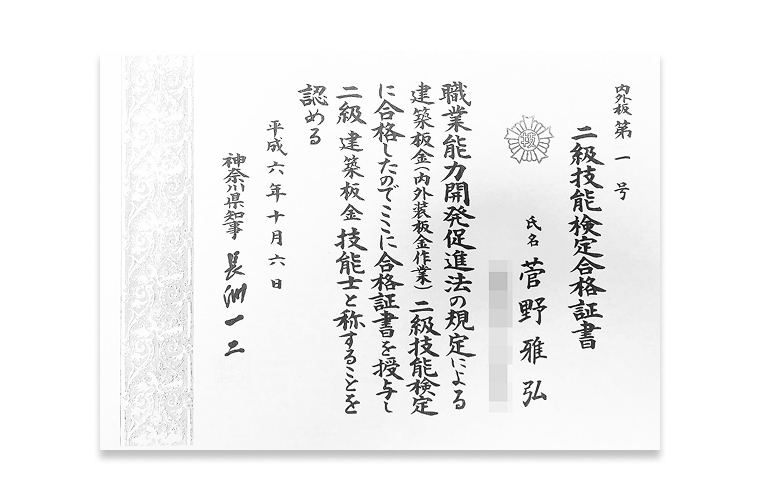 内外板第一号
二級技能検定合格証書
氏名 菅野雅弘
職業能力開発促進法の規定による
建築板金(内外装板金作業)二級技能検定
に合格したのでここに合格証書を授与し
二級 建築板金 技能士と称することを
認める
平成六年十月六日
神奈川県知事 長洲一二